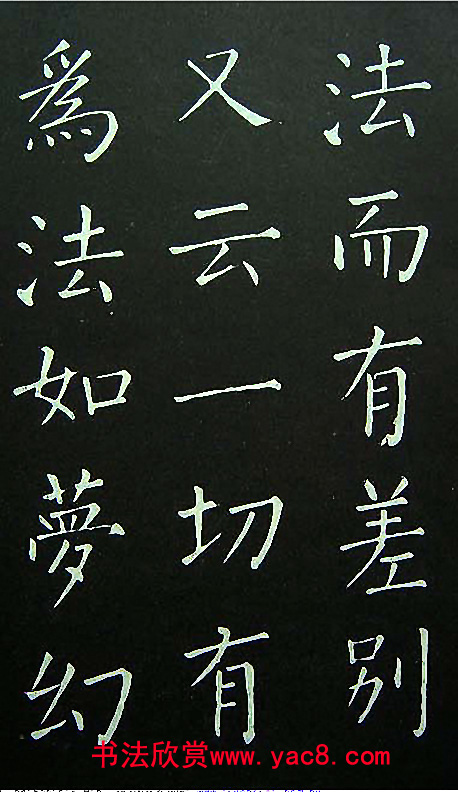 法而有差别
又云一切有
為法如夢幻
书法欣赏www.yac8.com